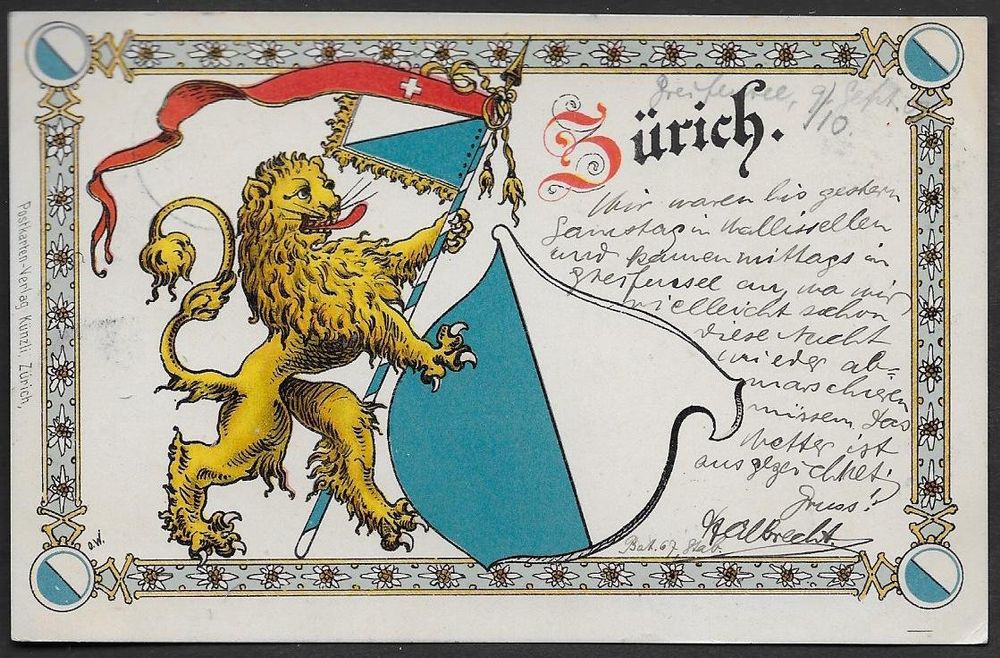 Zürich.
Greifensee, 9/ Sept.
/10.
Wir waren bis gestern
Samstag in Wallisellen
und kamen mittags in
Greifensee an, wo wir
vielleicht schon
diese Nacht
wieder ab=
marschieren
müssen. Das
Wetter ist
ausgezeichnet!
Gruss!
Albrecht.
Bat. 67 Stab.
Postkarten-Verlag Künzli, Zürich,
O.W.